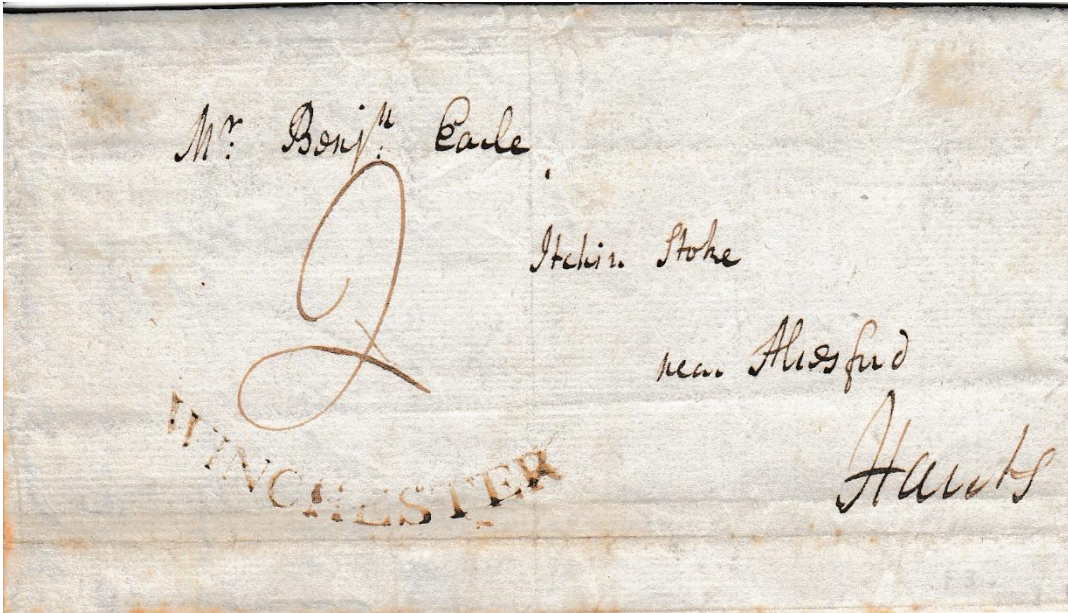 Mr. Benjn. Earle
2
Itchin Stoke
near Alresford
Hants
WINCHESTER